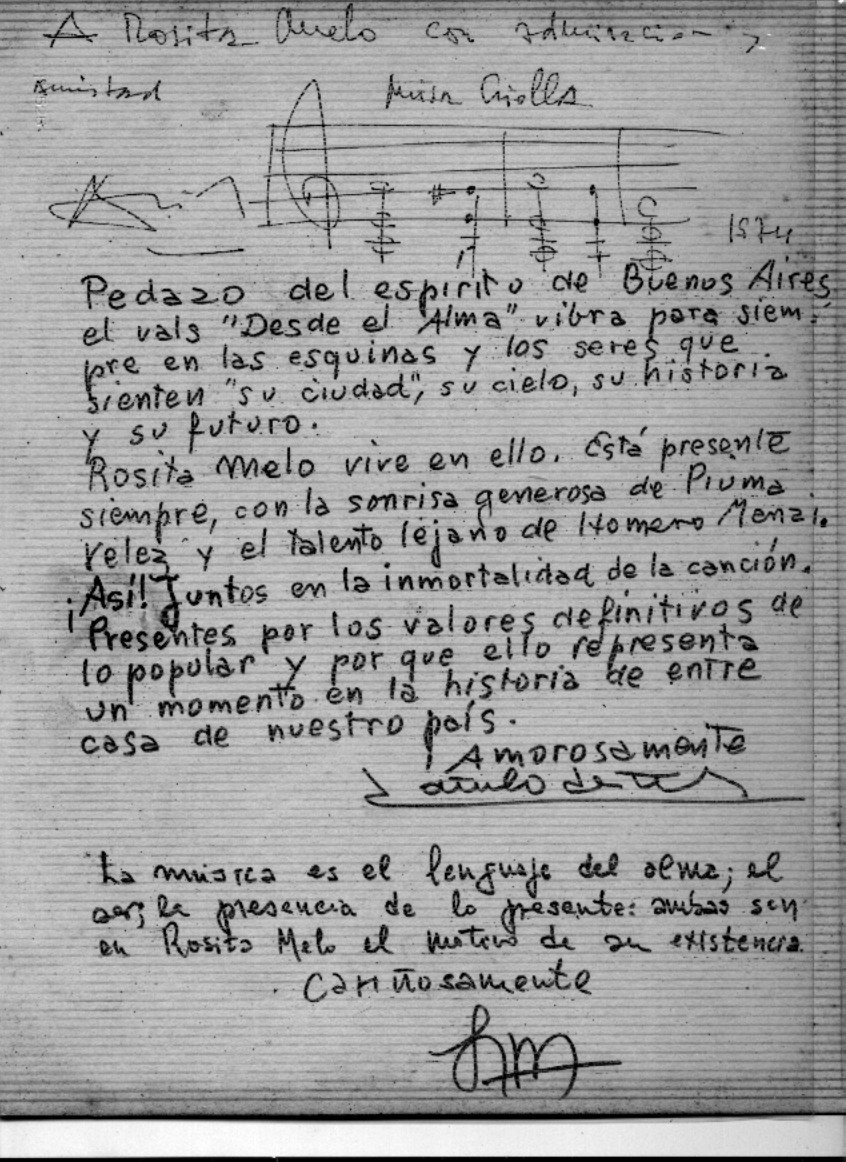 A Rosita Melo con admiracion y
amistad
Misa Criolla
1974
Pedazo del espíritu de Buenos Aires
el vals "Desde el Alma" vibra para siem-
pre en las esquinas y los seres que
sienten "su ciudad", su cielo, su historia
y su futuro.
Rosita Melo vive en ello. Está presente
siempre, con la sonrisa generosa de Piuma
Velez y el talento lejano de Homero Manzi.
¡Así! Juntos en la inmortalidad de la canción.
Presentes por los valores definitivos de
lo popular y por que ello representa
un momento en la historia de entre
casa de nuestro país.
Amorosamente
La música es el lenguaje del alma; el
ser; la presencia de lo presente: ambas son
en Rosita Melo el motivo de su existencia.
Cariñosamente